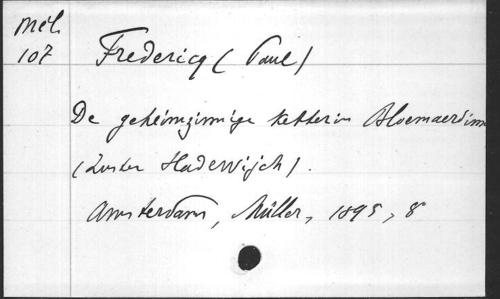 Mél.
107
Fredericq (Paul)
De geheimzinnige ketterin Bloemaerdinne
(Zuster Hadewijch).
Amsterdam, Müller, 1895, 8°